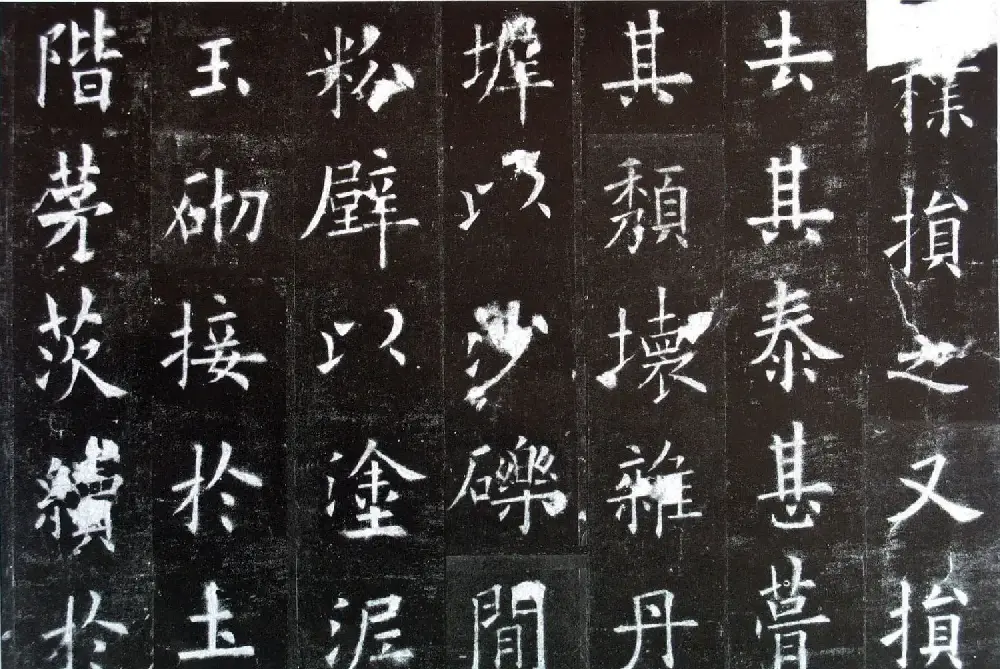 樣損之又損
去其泰甚葺
其頹壞雜丹
墀以沙礫間
粉壁以塗泥
玉砌接於土
階茅茨續於